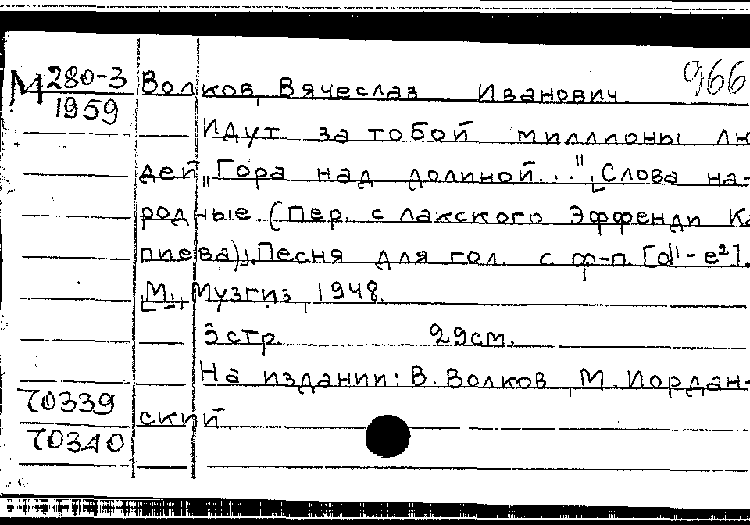 М 280-3 Волков, Вячеслав Иванович 966
1959
Идут за тобой миллионы лю
дей „Гора над долиной..." Слова на-
родные. (Пер. с лакского Эффенди Ка
пиева). Песня для гол. с ф-п. [d¹-e²].
[М.], Музгиз, 1948.
3 стр. 29см.
На издании: В. Волков, М. Иордан-
70339 ский
70340